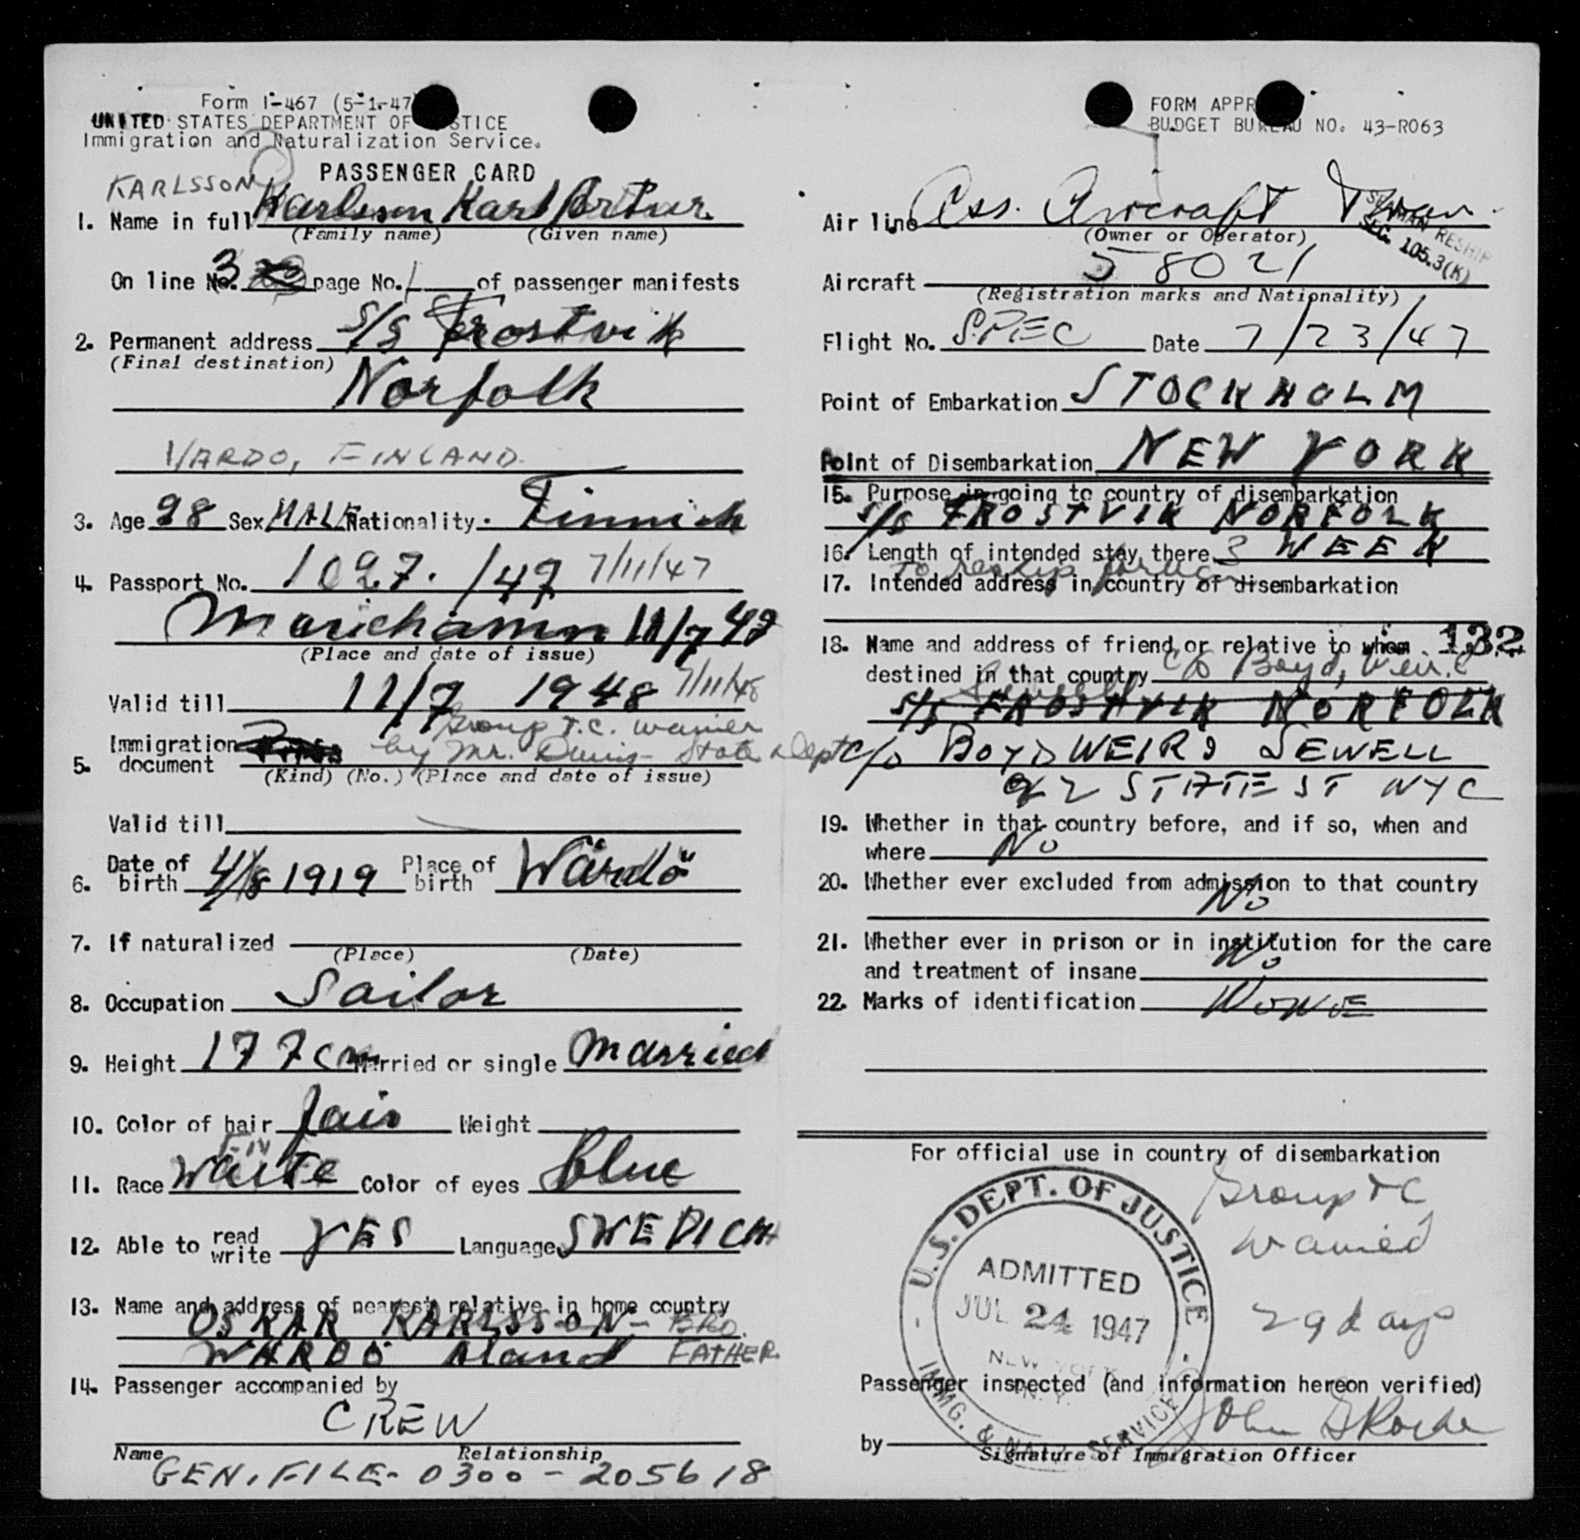 Form I-467 (5-1-47)
UNITED STATES DEPARTMENT OF JUSTICE
Immigration and Naturalization Service.
PASSENGER CARD
KARLSSON
1. Name in full Karlsson Karl Artur
(Family name) (Given name)
On line No. 3 page No. 1 of passenger manifests
2. Permanent address s/s Frostvik
(Final destination)
Norfolk
VARDO, FINLAND
3. Age 28 Sex MALE Nationality. Finnish
4. Passport No. 1027./47 7/11/47
Mariehamn 11/7 47
(Place and date of issue)
Valid till 11/7 1948 7/11/48
Group T.C. waiver
5. Immigration document by Mr. State Dept
(Kind) (No.) (Place and date of issue)
Valid till
6. Date of birth 4/8 1919 Place of birth Wårdö
7. If naturalized
(Place) (Date)
8. Occupation Sailor
9. Height 177 cm Married or single Married
10. Color of hair fair Weight
FIN
11. Race Waite Color of eyes blue
12. Able to read write YES Language SWEDICH
13. Name and address of nearest relative in home country
OSKAR KARLSSON - BRO.
WARDÖ Aland FATHER.
14. Passenger accompanied by
CREW
Name Relationship
GEN. FILE - 0300 - 205618
FORM APPR
BUDGET BUREAU NO. 43-R063
Air line Ass. Aircraft Tran.
(Owner or Operator)
SEAMAN RESHIP
SEC. 105.3(K)
Aircraft 58021
(Registration marks and Nationality)
Flight No. SPEC Date 7/23/47
Point of Embarkation STOCKHOLM
Point of Disembarkation NEW YORK
15. Purpose in going to country of disembarkation
s/s FROSTVIK NORFOLK
16. Length of intended stay there 3 WEEK
to reship foreign
17. Intended address in country of disembarkation
18. Name and address of friend or relative to whom 132
destined in that country c/o Boyd, Weir &
Sewell
s/s FROSTVIK NORFOLK
c/o BOYD WEIR & SEWELL
22 STATE ST NYC
19. Whether in that country before, and if so, when and
where No
20. Whether ever excluded from admission to that country
No
21. Whether ever in prison or in institution for the care
and treatment of insane No
22. Marks of identification NONE
For official use in country of disembarkation
Group TC
waived
29 days
U.S. DEPT. OF JUSTICE
ADMITTED
JUL 24 1947
NEW YORK
N.Y.
IMMG. & NAT. SERVICE
Passenger inspected (and information hereon verified)
by John
Signature of Immigration Officer